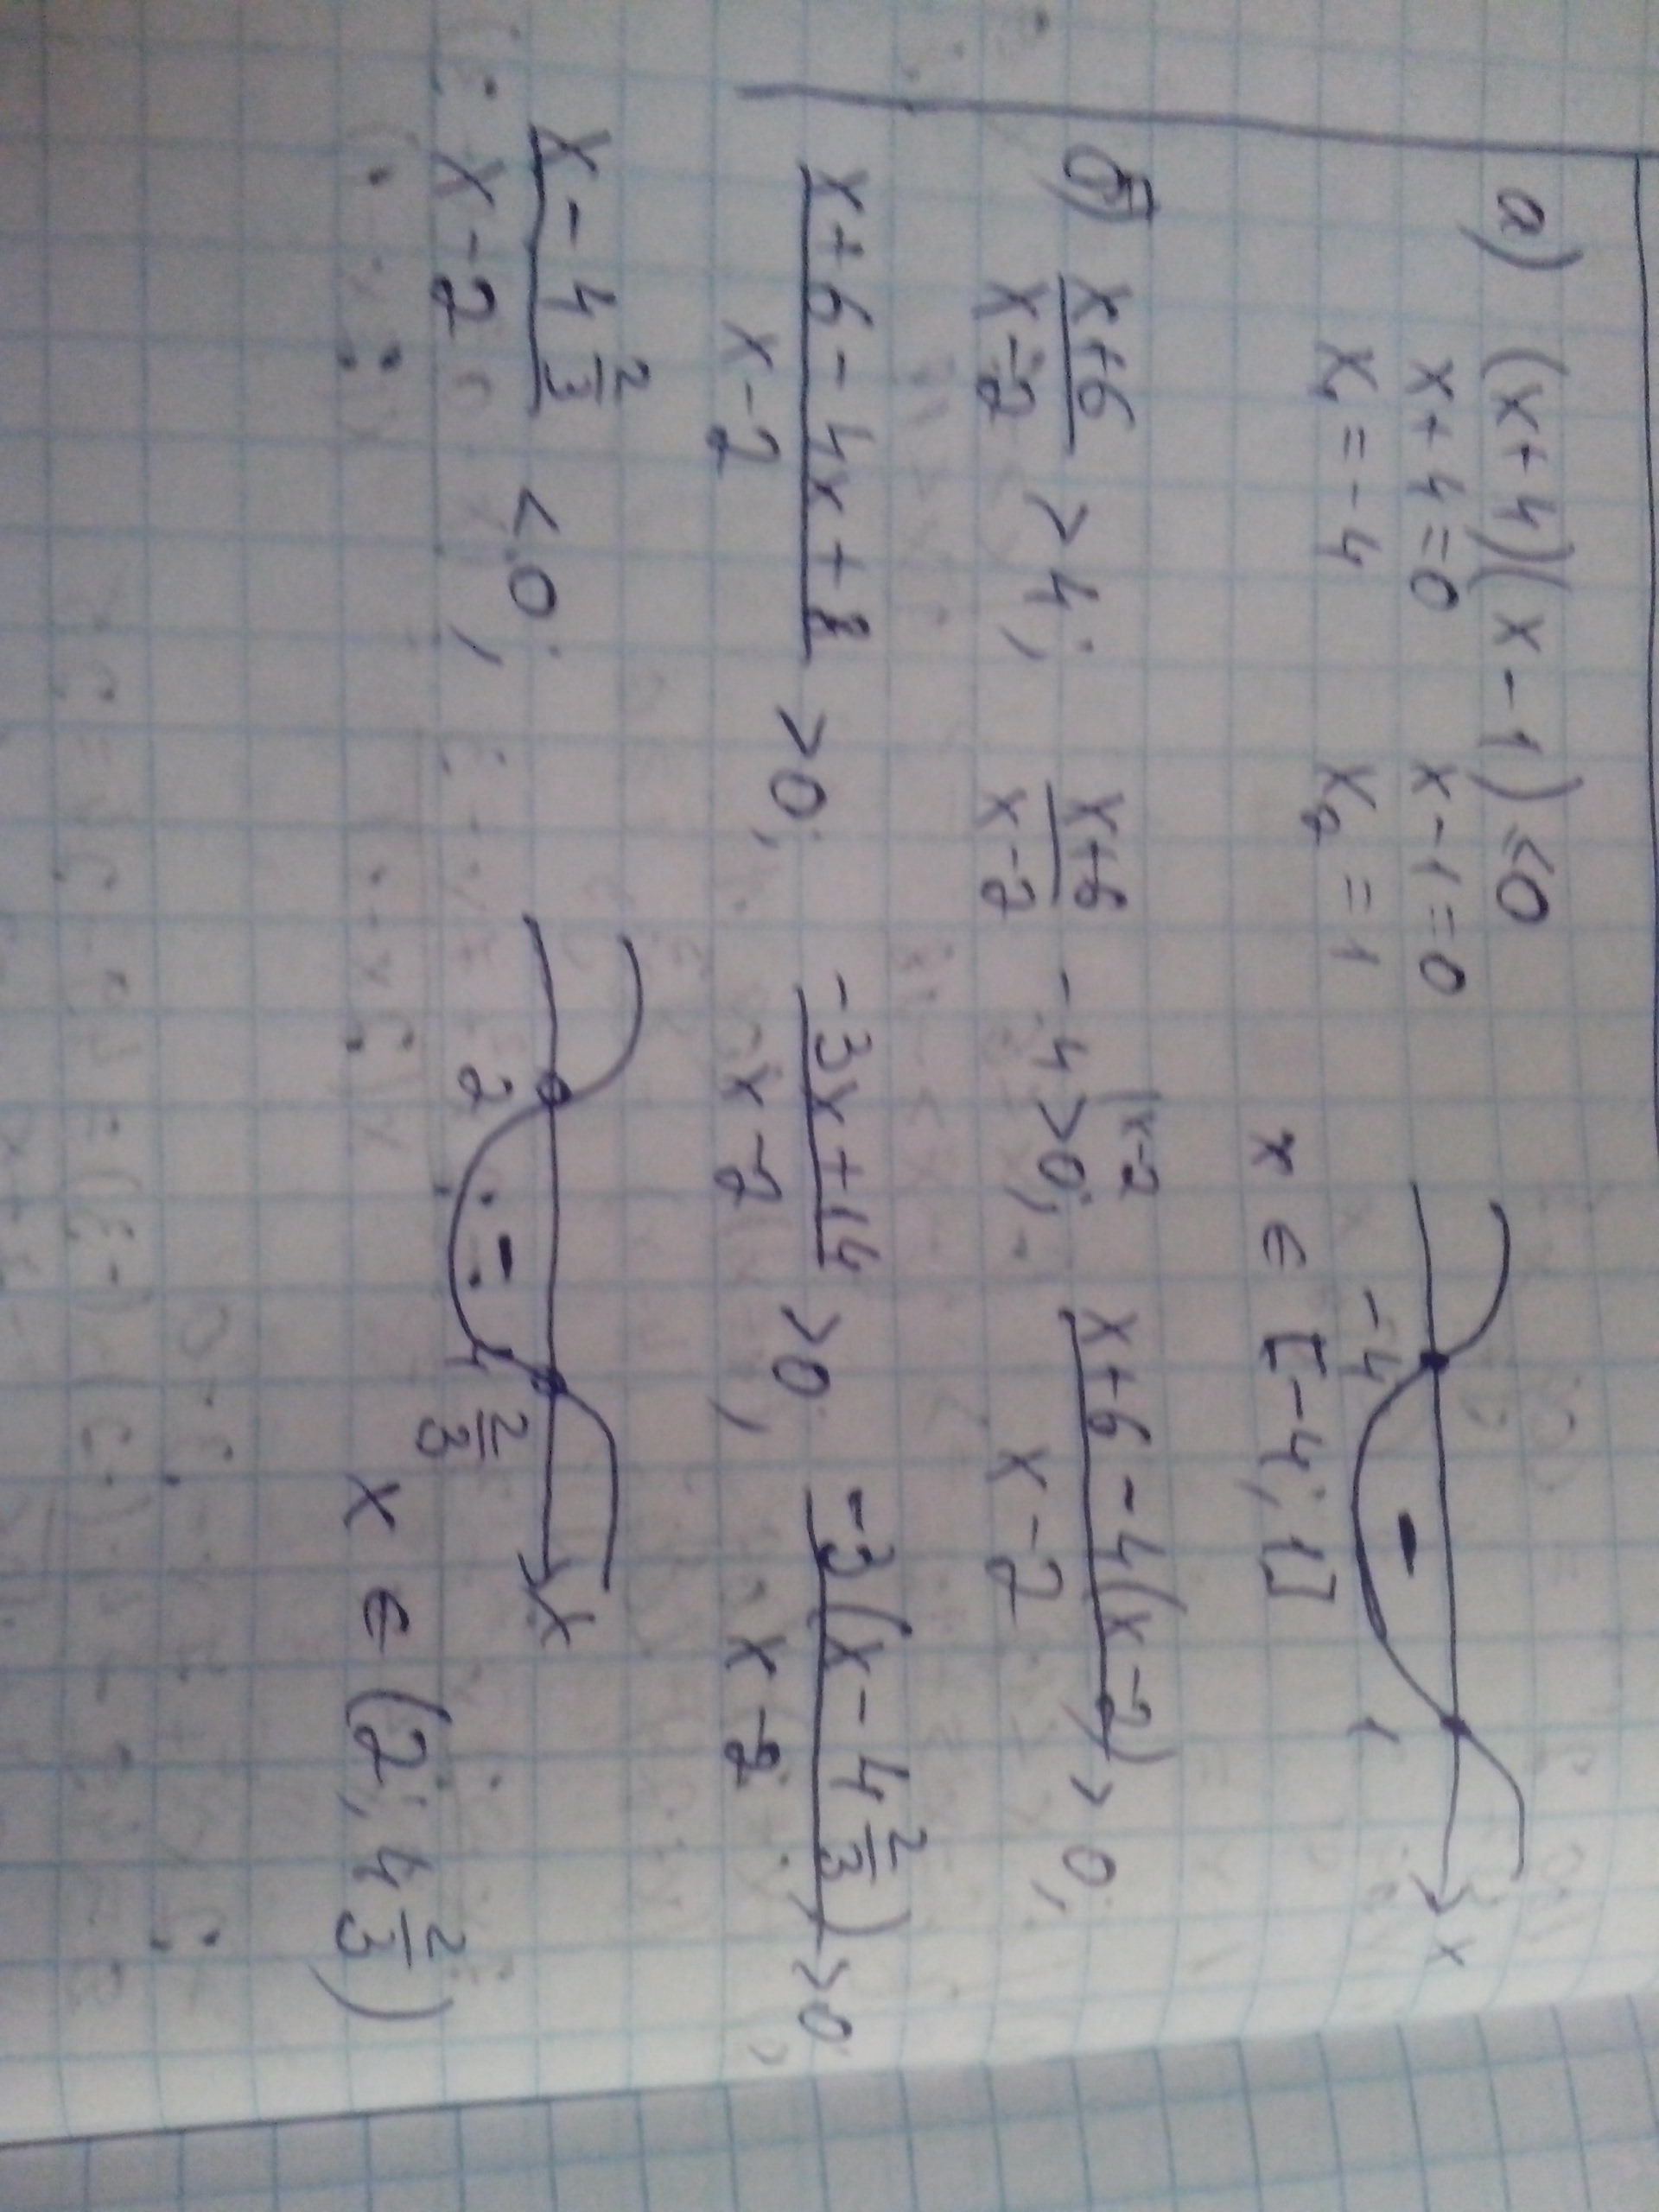 а) (x+4)(x-1)≤0
x+4=0 x-1=0
x₁=-4 x₂=1
-4 - 1 x
x∈[-4; 1]
б) (x+6)/(x-2) > 4; (x+6)/(x-2) - 4 |x-2 >0; (x+6-4(x-2))/(x-2) > 0;
(x+6-4x+8)/(x-2) >0; (-3x+14)/(x-2) >0; (-3(x-4 2/3))/(x-2) >0;
(x-4 2/3)/(x-2) <0;
2 - 4 2/3 x
x∈(2; 4 2/3)